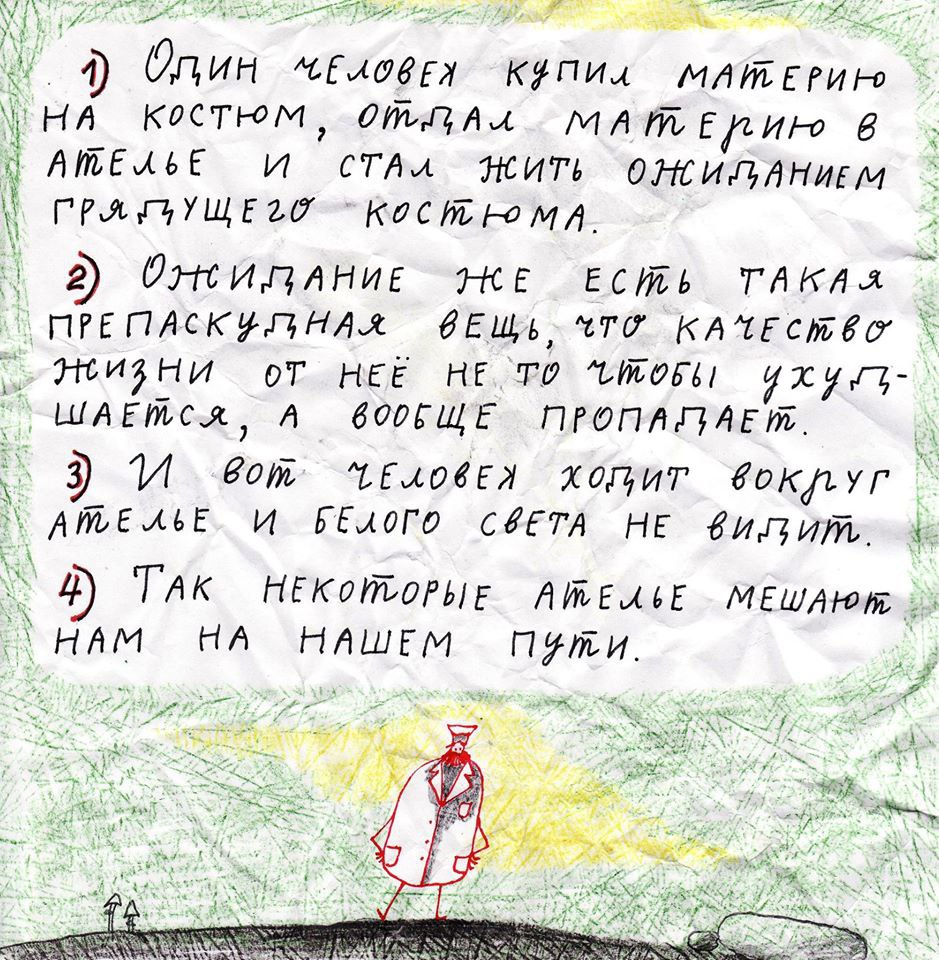 1) Один человек купил материю
на костюм, отдал материю в
ателье и стал жить ожиданием
грядущего костюма.
2) Ожидание же есть такая
препаскудная вещь, что качество
жизни от неё не то чтобы ухуд-
шается, а вообще пропадает.
3) И вот человек ходит вокруг
ателье и белого света не видит.
4) Так некоторые ателье мешают
нам на нашем пути.